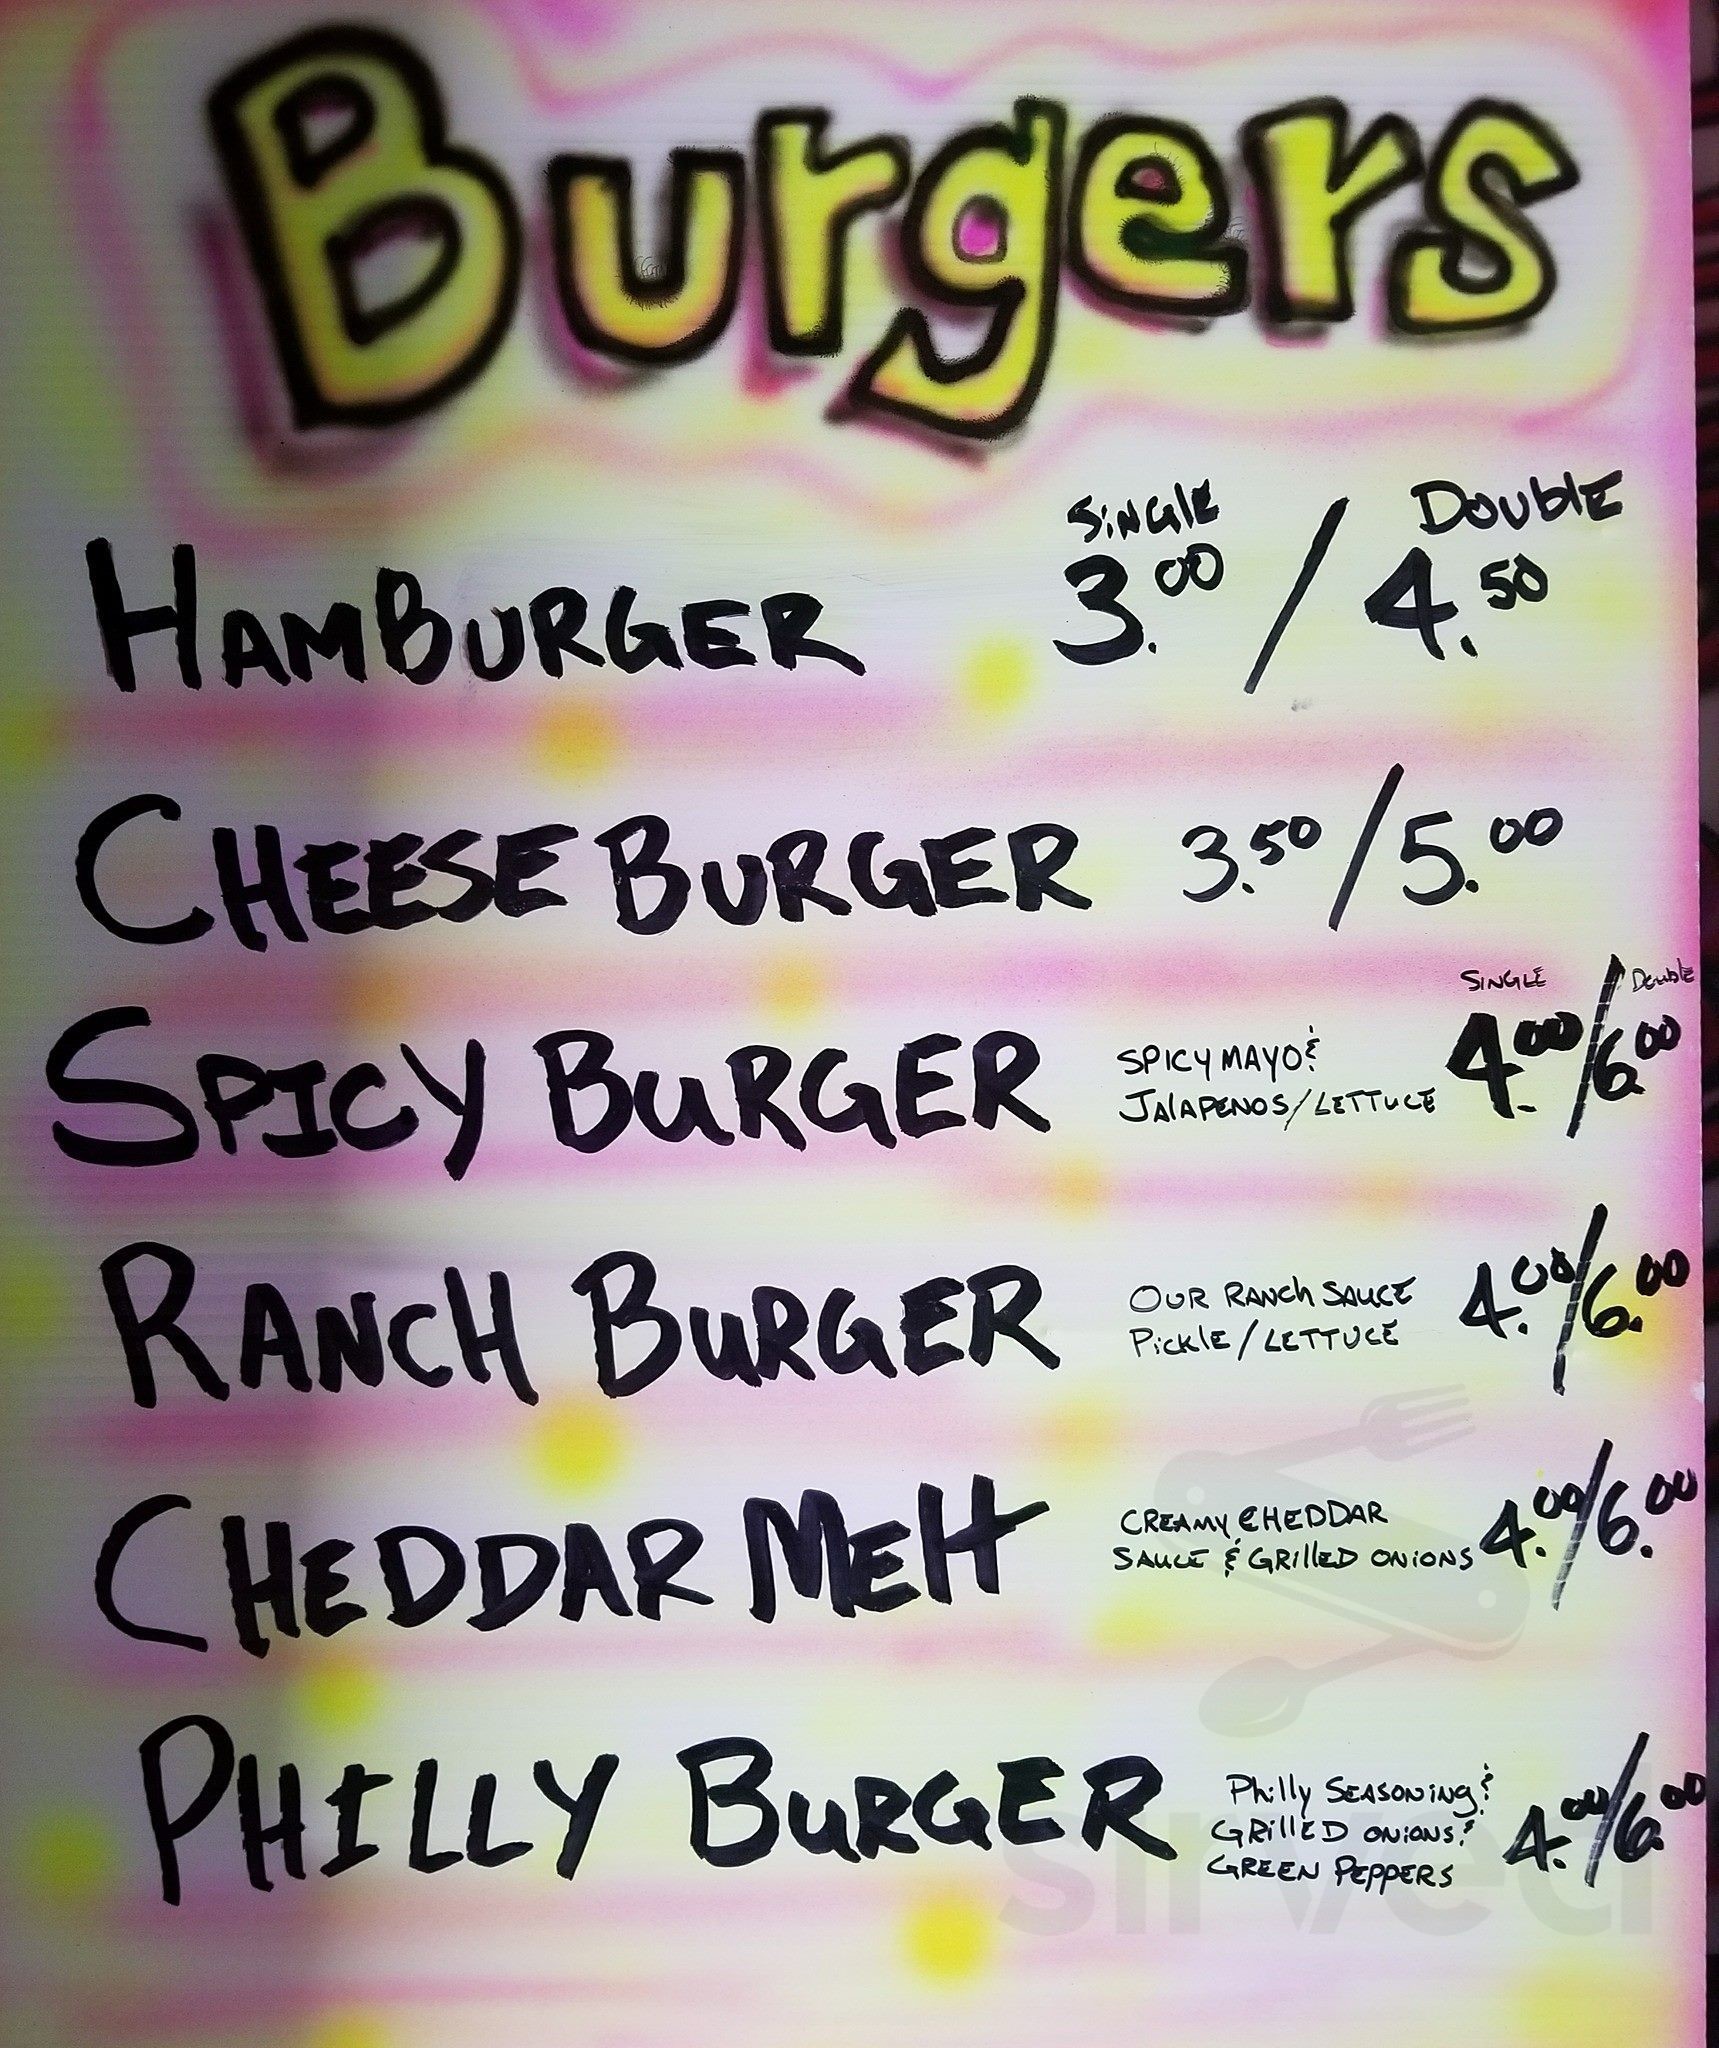 Burgers
Single / Double
HAMBURGER 3.00 / 4.50
CHEESE BURGER 3.50 / 5.00
SINGLE / Double
SPICY BURGER SPICY MAYO & 4.00 / 6.00
JALAPENOS / LETTUCE
RANCH BURGER OUR RANCH SAUCE 4.00 / 6.00
PICKLE / LETTUCE
CHEDDAR MElt CREAMY CHEDDAR 4.00 / 6.00
SAUCE & GRILLED ONIONS
PHILLY BURGER Philly SEASONING & 4.00 / 6.00
GRILLED ONIONS &
GREEN PEPPERS
sirved